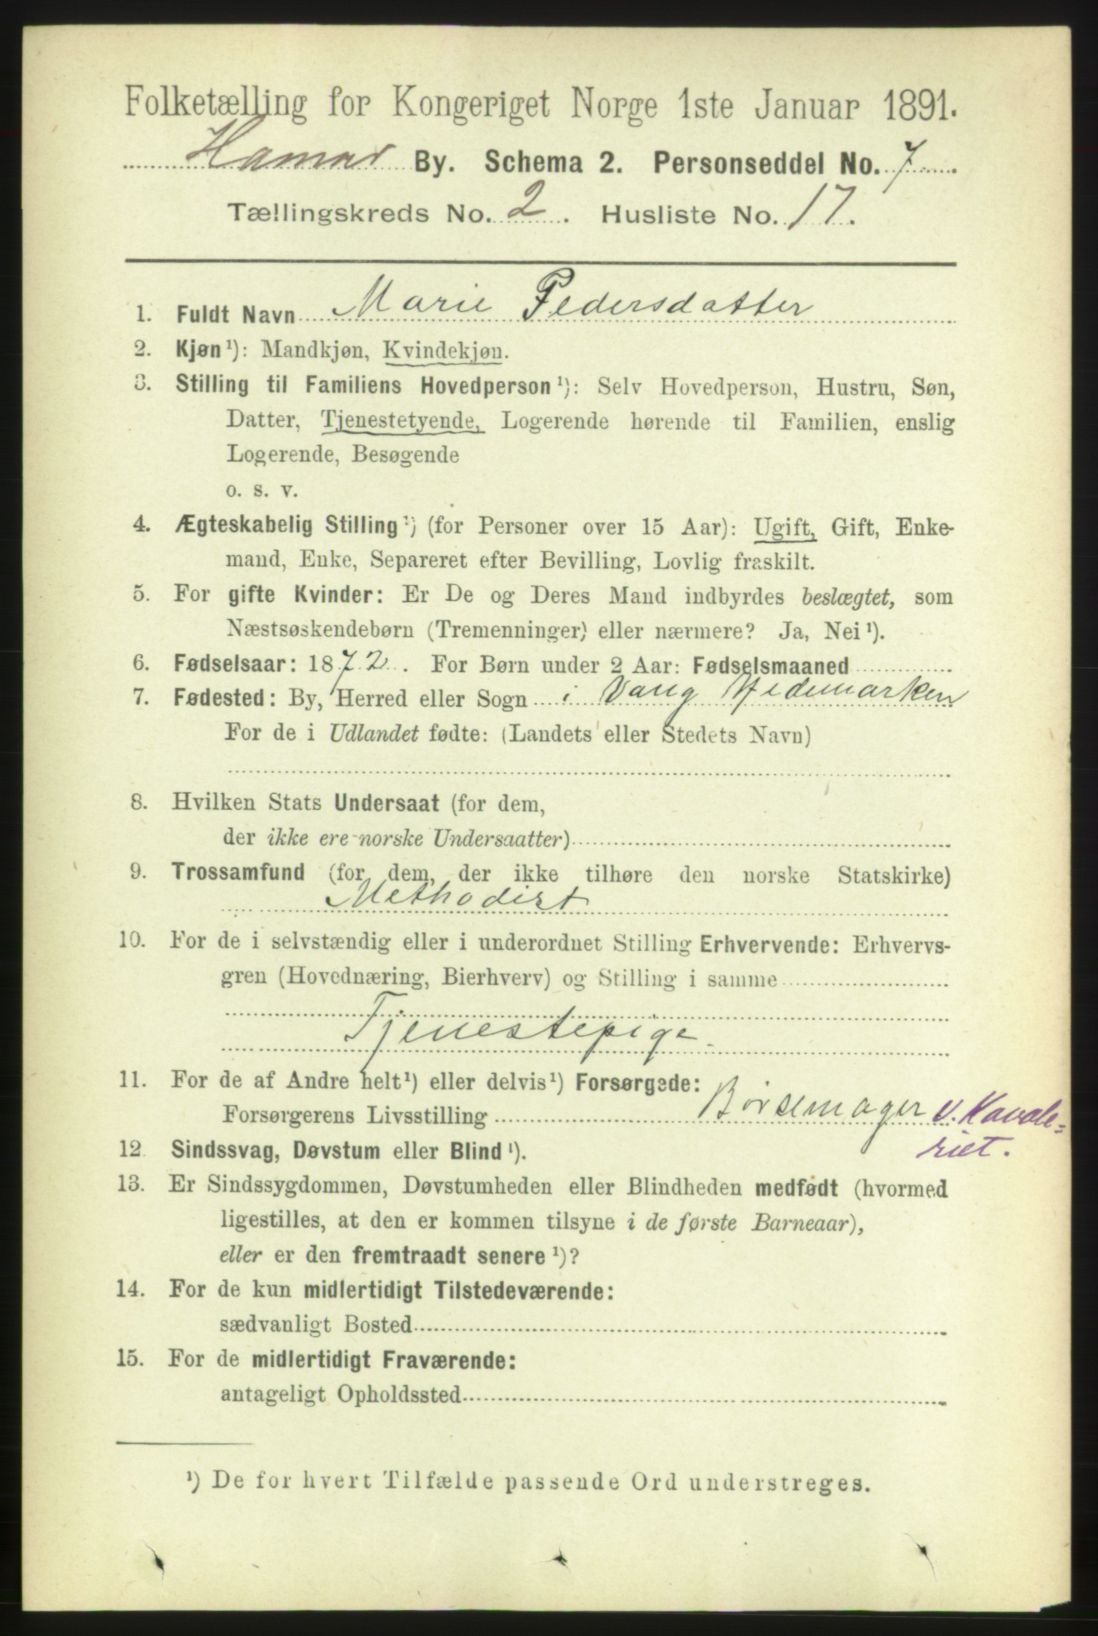 Folketælling for Kongeriget Norge 1ste Januar 1891.
Hamar By. Schema 2. Personseddel No. 7
Tællingskreds No. 2. Husliste No. 17.
1. Fuldt Navn Marie Pedersdatter
2. Kjøn ¹): Mandkjøn, Kvindekjøn.
3. Stilling til Familiens Hovedperson ¹): Selv Hovedperson, Hustru, Søn,
Datter, Tjenestetyende, Logerende hørende til Familien, enslig
Logerende, Besøgende
o. s. v.
4. Ægteskabelig Stilling ¹) (for Personer over 15 Aar): Ugift, Gift, Enke-
mand, Enke, Separeret efter Bevilling, Lovlig fraskilt.
5. For gifte Kvinder: Er De og Deres Mand indbyrdes beslægtet, som
Næstsøskendebørn (Tremenninger) eller nærmere? Ja, Nei ¹).
6. Fødselsaar: 1872. For Børn under 2 Aar: Fødselsmaaned
7. Fødested: By, Herred eller Sogn i Vang Hedemarken
For de i Udlandet fødte: (Landets eller Stedets Navn)
8. Hvilken Stats Undersaat (for dem,
der ikke ere norske Undersaatter)
9. Trossamfund (for dem, der ikke tilhøre den norske Statskirke)
Methodist
10. For de i selvstændig eller i underordnet Stilling Erhvervende: Erhvervs-
gren (Hovednæring, Bierhverv) og Stilling i samme
Tjenestepige.
11. For de af Andre helt ¹) eller delvis ¹) Forsørgede:
Forsørgerens Livsstilling Børsemager v. Kavale=
riet.
12 Sindssvag, Døvstum eller Blind ¹).
13. Er Sindssygdommen, Døvstumheden eller Blindheden medfødt (hvormed
ligestilles, at den er kommen tilsyne i de første Barneaar),
eller er den fremtraadt senere ¹)?
14. For de kun midlertidigt Tilstedeværende:
sædvanligt Bosted
15. For de midlertidigt Fraværende:
antageligt Opholdssted
¹) De for hvert Tilfælde passende Ord understreges.